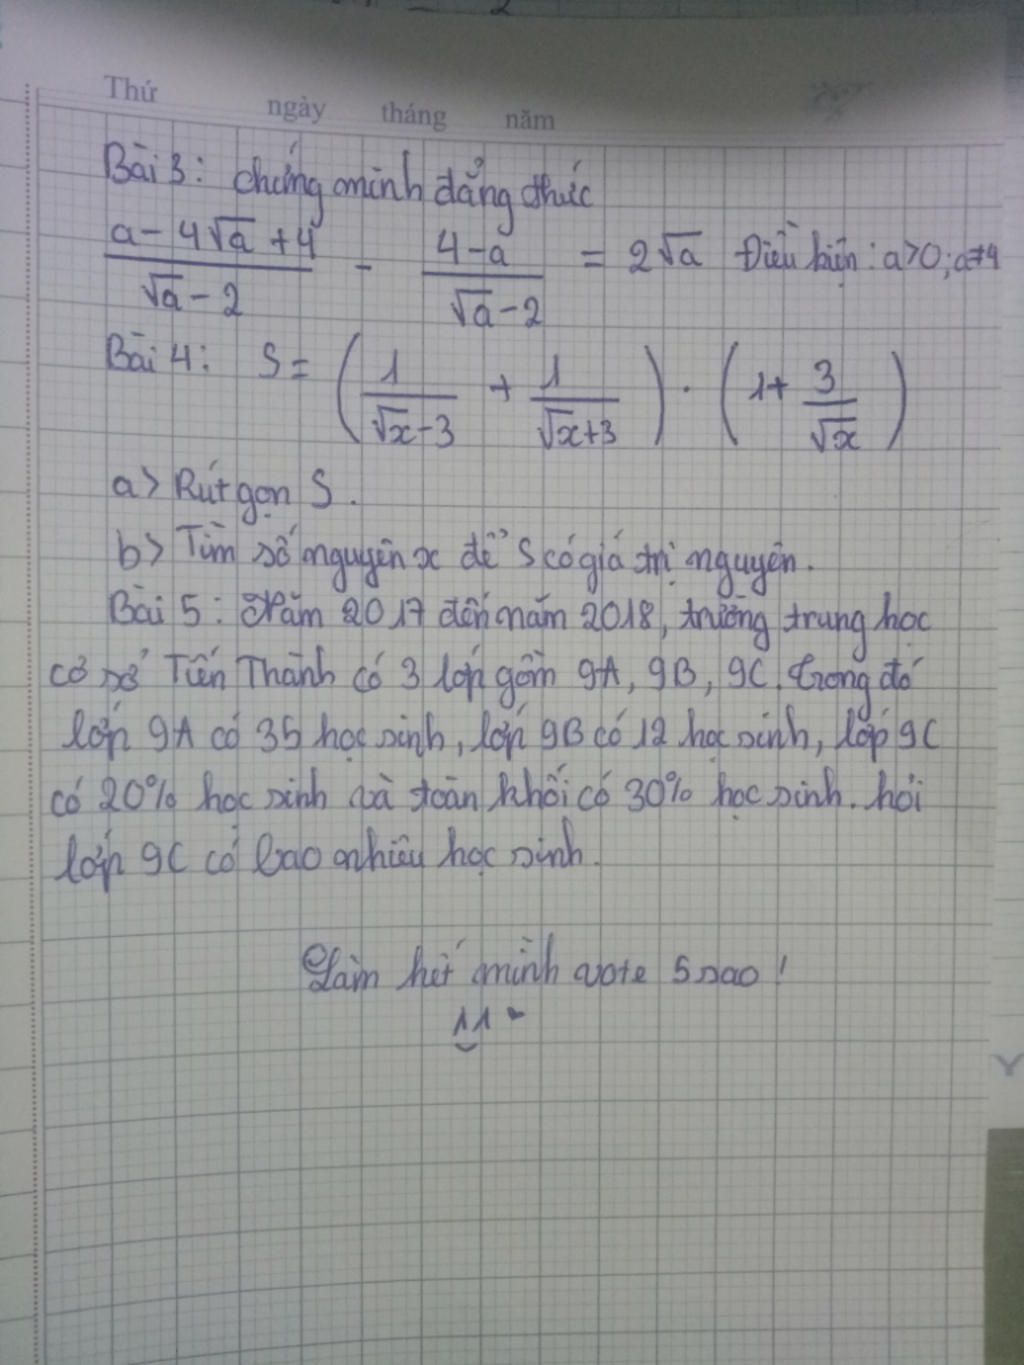 Thứ ngày tháng năm
Bài 3: chứng minh đẳng thức
a-4√a+4/√a-2 - 4-a/√a-2 = 2√a Điều kiện: a>0; a≠4
Bài 4: S = (1/√x-3 + 1/√x+3) . (1+ 3/√x)
a> Rút gọn S.
b> Tìm số nguyên x để S có giá trị nguyên.
Bài 5: Năm 2017 đến năm 2018, trường trung học
cơ sở Tiến Thành có 3 lớp gồm 9A, 9B, 9C. trong đó
lớp 9A có 35 học sinh, lớp 9B có 12 học sinh, lớp 9C
có 20% học sinh và toàn khối có 30% học sinh. hỏi
lớp 9C có bao nhiêu học sinh.
Làm hết mình vote 5 sao!